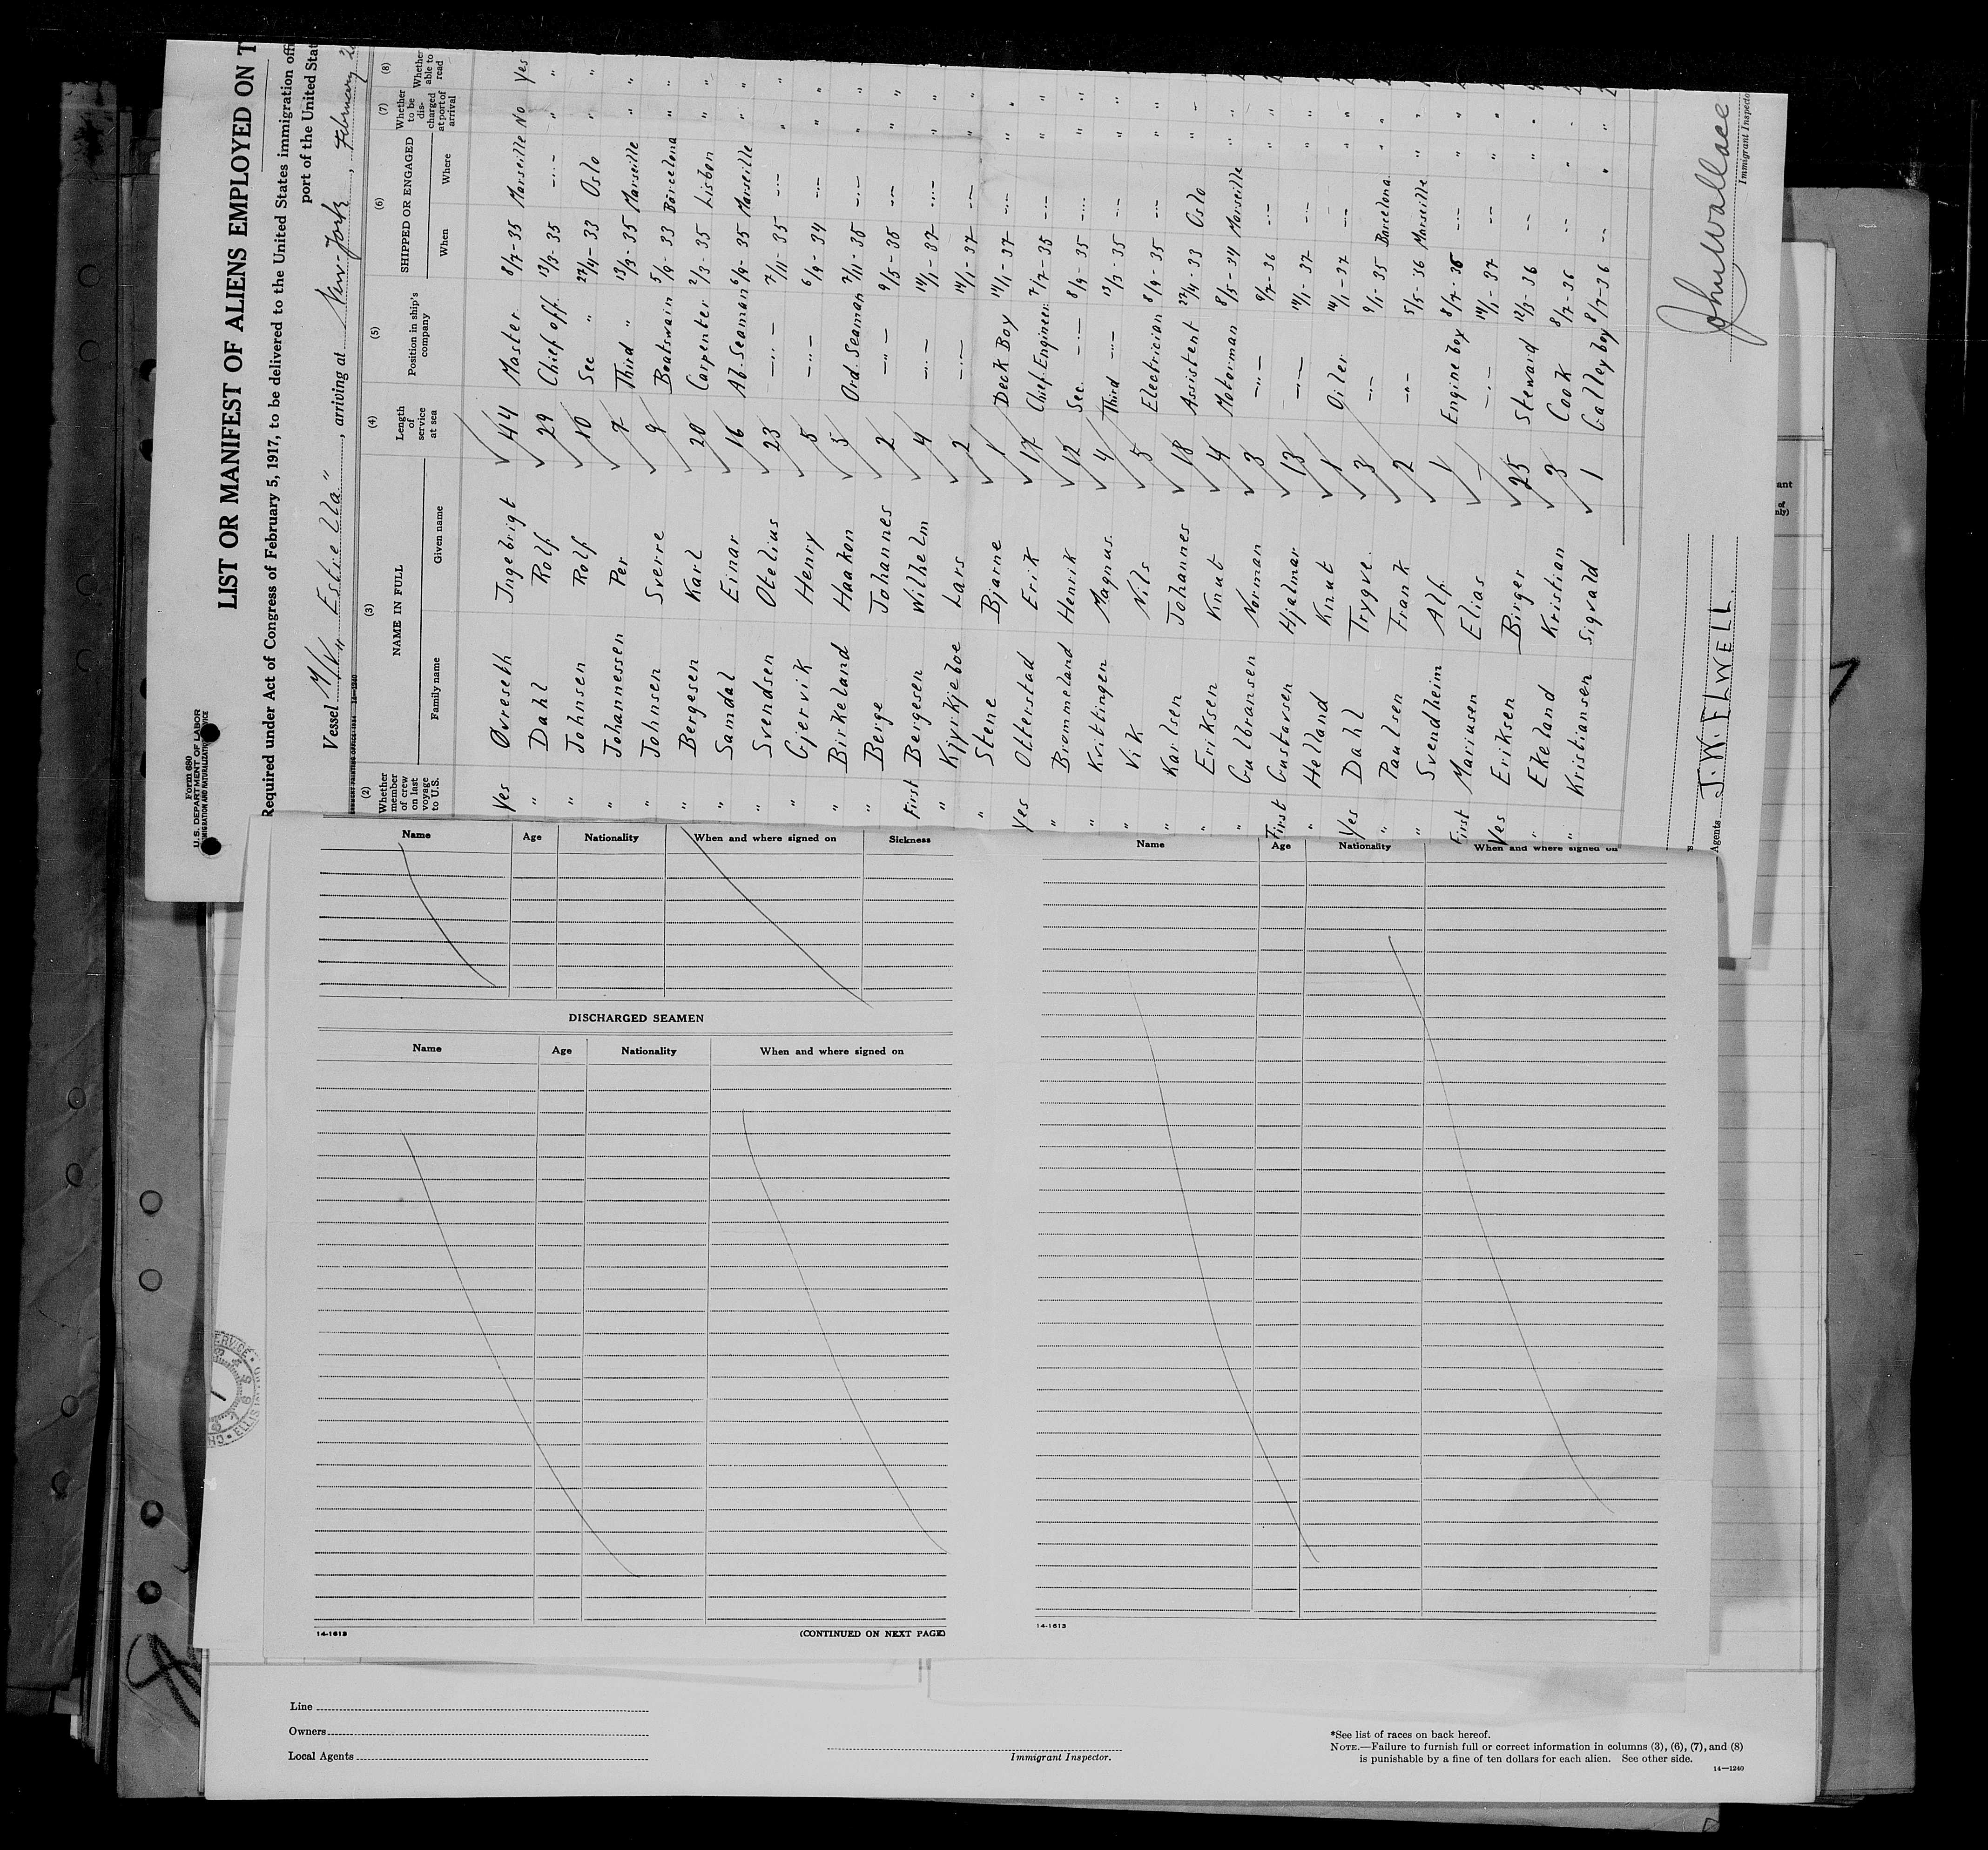 Form 680
U.S. DEPARTMENT OF LABOR
IMMIGRATION AND NATURALIZATION SERVICE
LIST OR MANIFEST OF ALIENS EMPLOYED ON T
Required under Act of Congress of February 5, 1917, to be delivered to the United States immigration offi
port of the United Stat
Vessel M/V "Estrella", arriving at New-York, February 2
(2) Whether member of crew on last voyage to U.S.
(3) NAME IN FULL
Family name Given name
(4) Length of service at sea
(5) Position in ship's company
(6) SHIPPED OR ENGAGED
When Where
(7) Whether to be discharged at port of arrival
(8) Whether able to read
Yes Øvreseth Ingebrigt 44 Master 8/7-35 Marseille No Yes
" Dahl Rolf 29 Chief off. 13/3-35 -"- " "
" Johnsen Rolf 10 Sec " 27/4-33 Oslo " "
" Johannessen Per 7 Third " 13/3-35 Marseille " "
" Johnsen Sverre 9 Boatswain 5/9-33 Barcelona " "
" Bergesen Karl 20 Carpenter 2/3-35 Lisbon " "
" Samdal Einar 16 Ab. Seaman 6/9-35 Marseille " "
" Svendsen Otelius 23 -"- 7/11-35 -"- " "
" Gjervik Henry 5 -"- 6/9-34 -"- " "
" Birkeland Haakon 5 Ord. Seaman 7/11-35 -"- " "
" Berge Johannes 2 -"- 9/5-36 -"- " "
First Bergesen Wilhelm 4 -"- 14/1-37 -"- " "
" Kjyrkjeboe Lars 2 -"- 14/1-37 -"- " "
" Stene Bjarne 1 Deck Boy 14/1-37 -"- " "
Yes Otterstad Erik 17 Chief Engineer 7/7-35 -"- " "
" Brommeland Henrik 12 Sec. -"- 8/9-35 -"- " "
" Krittingen Magnus 4 Third -"- 13/3-35 -"- " "
" Vik Nils 5 Electrician 8/9-35 -"- " "
" Karlsen Johannes 18 Assistent 27/4-33 Oslo " "
" Eriksen Knut 4 Motorman 8/5-34 Marseille " "
" Gulbransen Norman 3 -"- 9/7-36 -"- " "
First Gustavsen Hjalmar 13 -"- 14/1-37 -"- " "
" Helland Knut 1 Oiler 14/1-37 -"- " "
Yes Dahl Trygve 3 -"- 9/1-35 Barcelona " "
" Paulsen Frank 2 -"- 5/5-36 Marseille " "
" Svendheim Alf 1 Engine boy 8/7-36 -"- " "
First Mariusen Elias - -"- 14/1-37 -"- " "
Yes Eriksen Birger 25 Steward 12/3-36 -"- " "
" Ekeland Kristian 3 Cook 8/7-36 -"- " "
" Kristiansen Sigvald 1 Galley boy 8/7-36 -"- " "
Agents J.W. ELWELL.
John Wallace
Immigrant Inspector
Name Age Nationality When and where signed on Sickness
DISCHARGED SEAMEN
Name Age Nationality When and where signed on
14-1613 (CONTINUED ON NEXT PAGE)
Name Age Nationality When and where signed on
14-1613
Line
Owners
Local Agents
Immigrant Inspector.
*See list of races on back hereof.
NOTE.—Failure to furnish full or correct information in columns (3), (6), (7), and (8)
is punishable by a fine of ten dollars for each alien. See other side.
14—1240